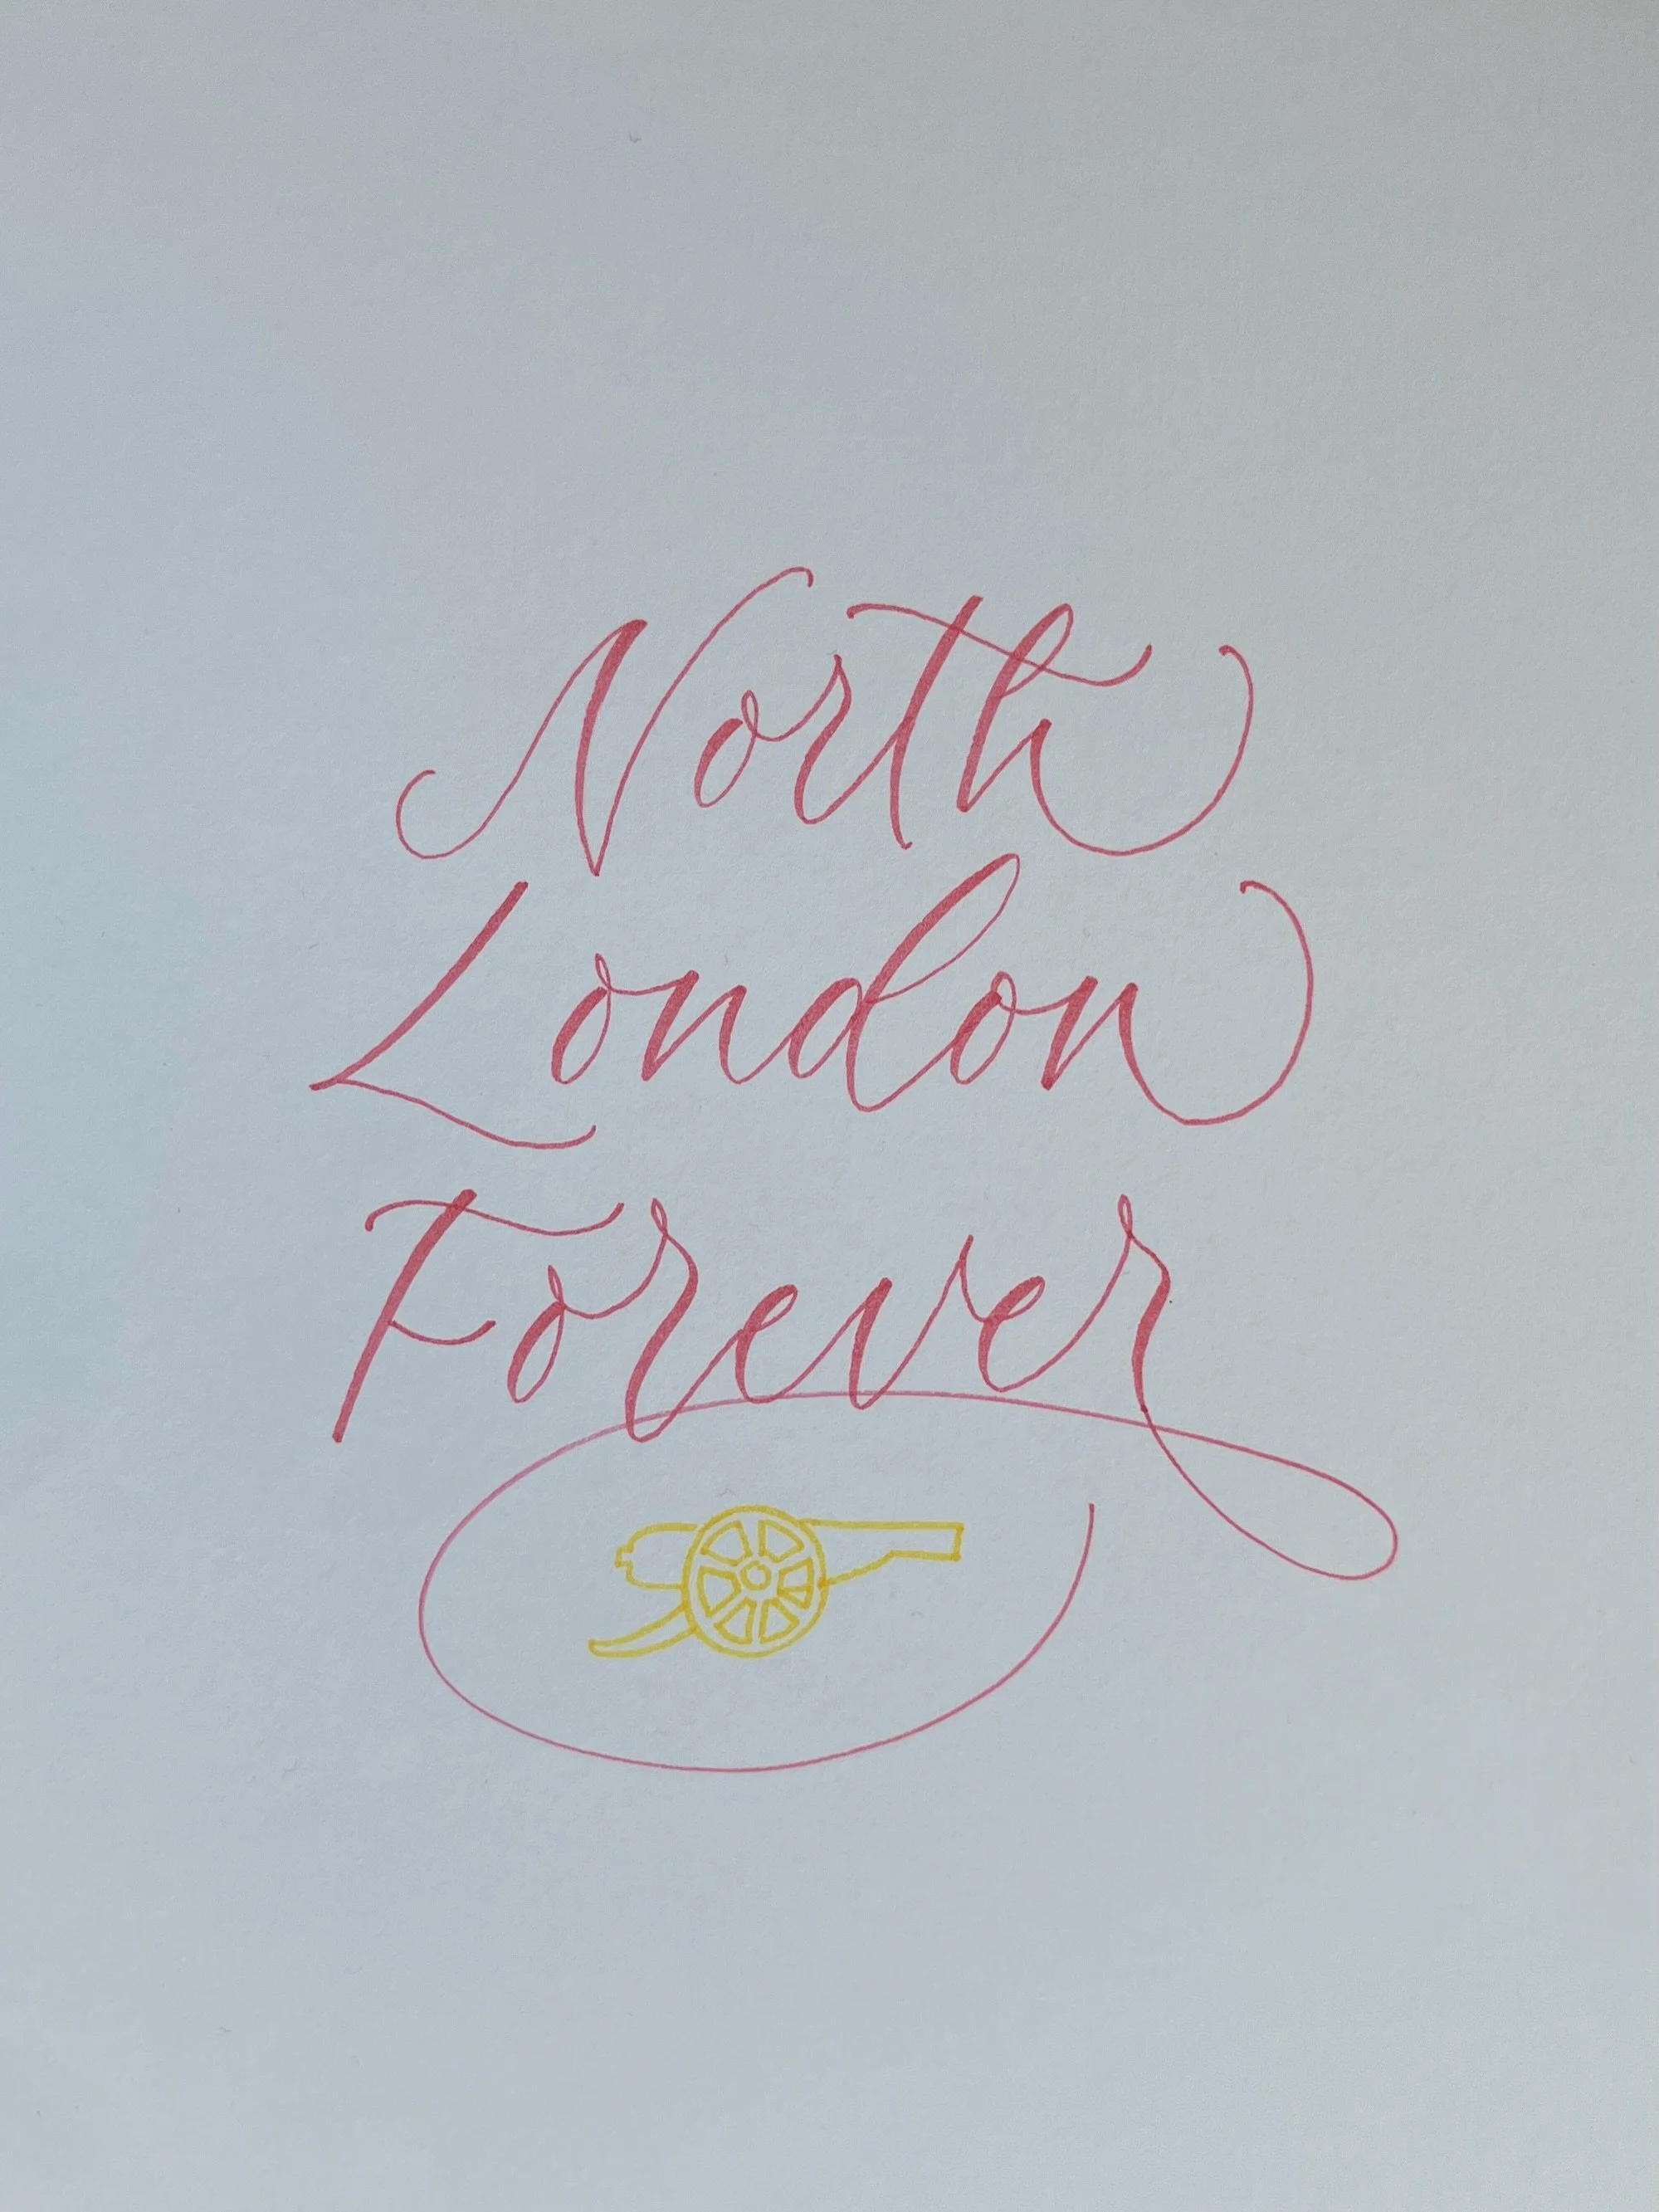 North
London
Forever